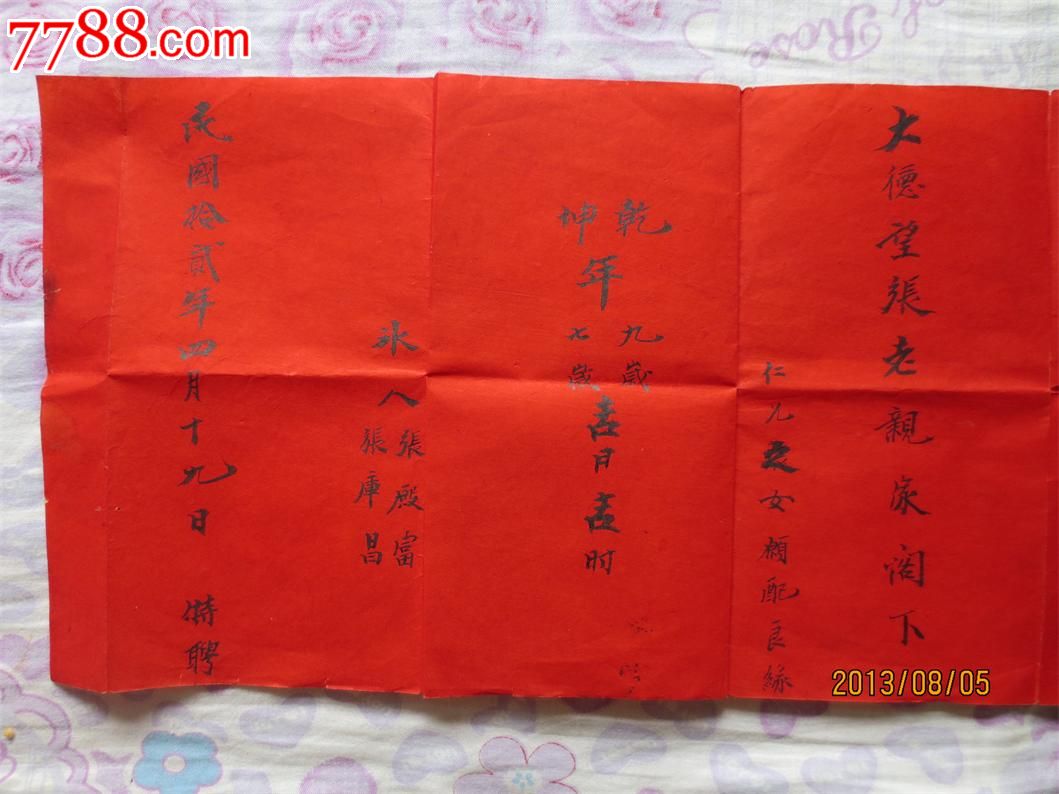 7788.com
大德望張老親家閣下
仁兄之女願配良緣
乾 九歲
年
坤 七歲
吉日吉时
冰人
張殿富
張庫昌
民國拾貳年四月十九日 特聘
2013/08/05